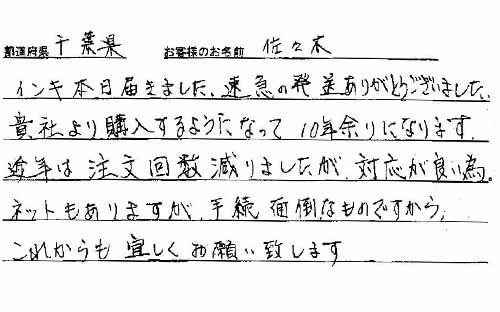 都道府県 千葉県 お客様のお名前 佐々木
インキ本日届きました、速急の発送ありがとうございました。
貴社より購入するようになって10年余りになります。
近年は注文回数減りましたが、対応が良い為。
ネットもありますが、手続面倒なものですから、
これからも宜しくお願い致します